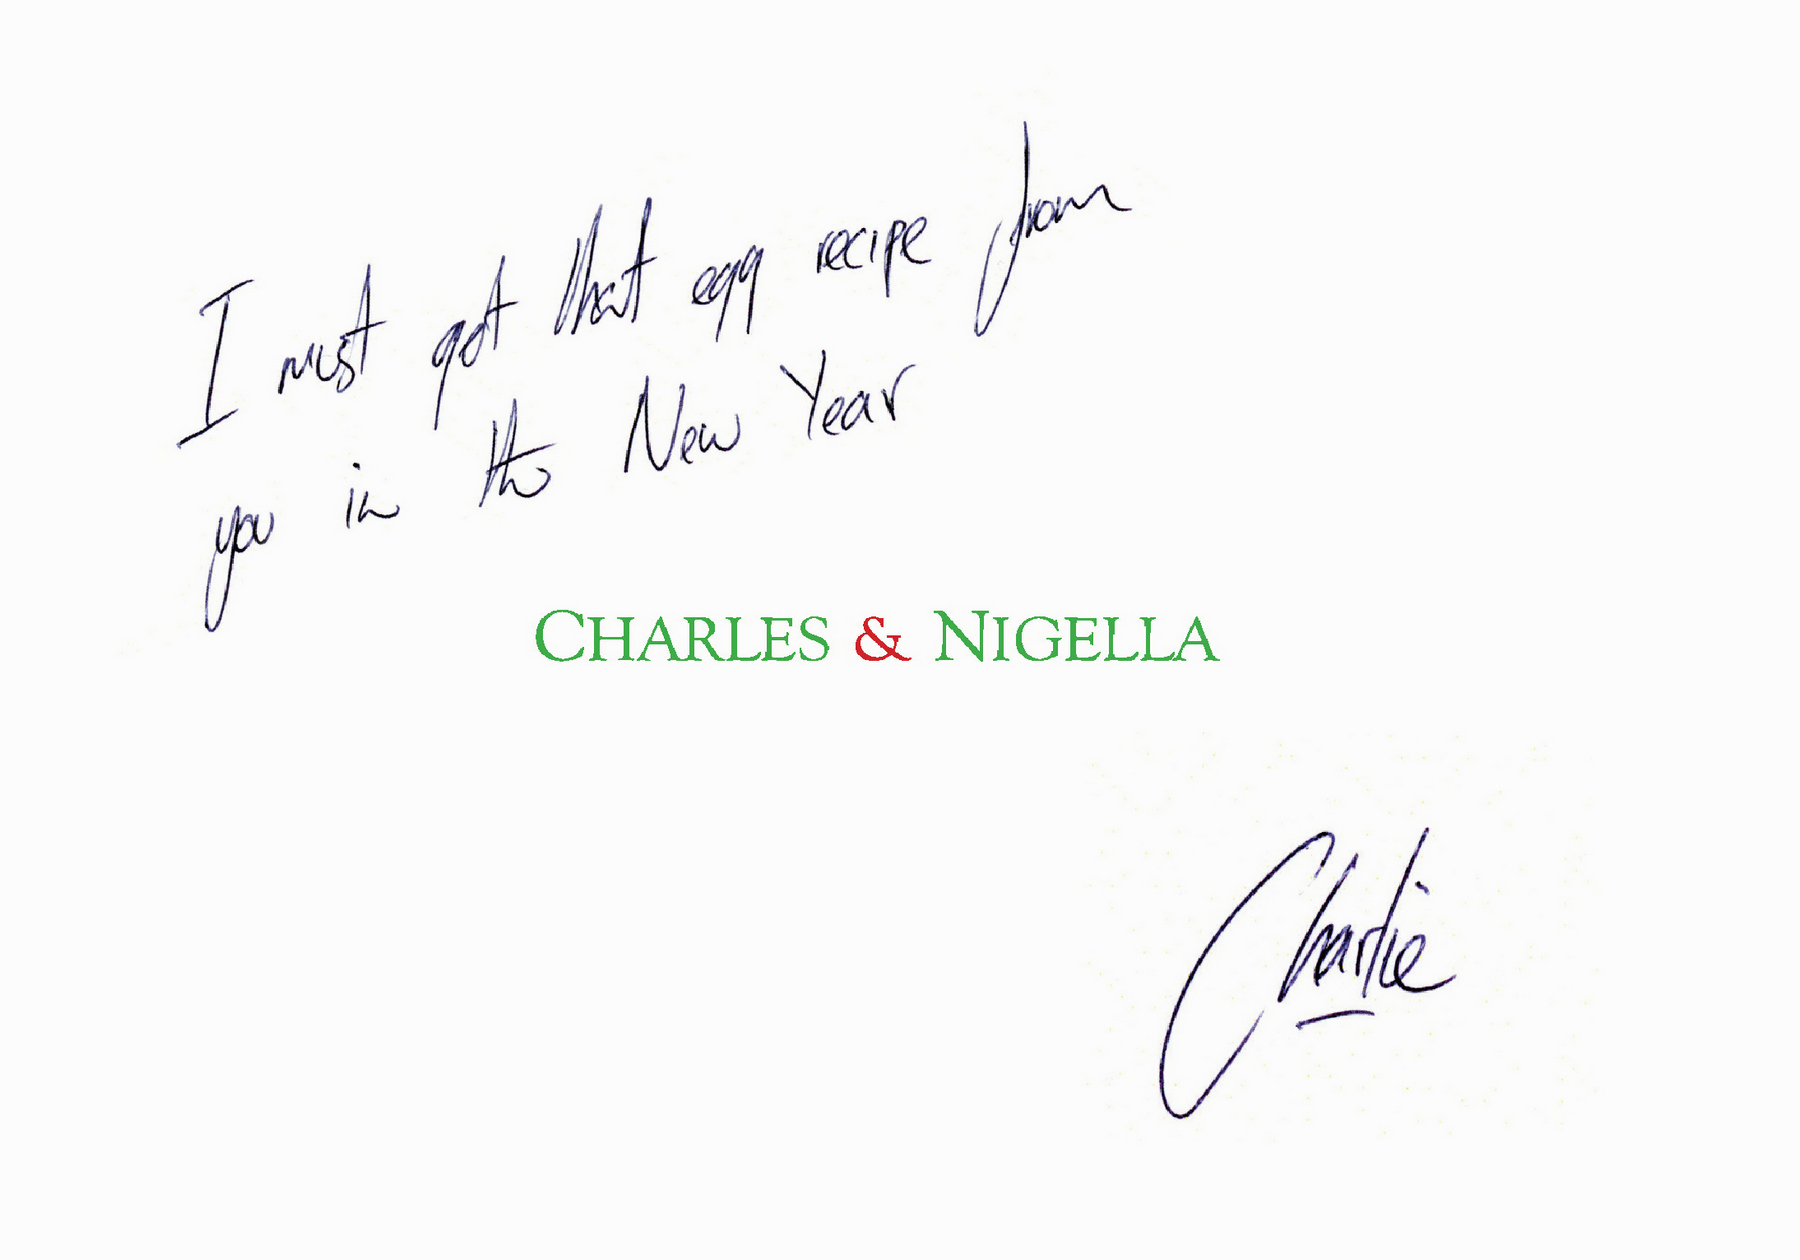 I must get that egg recipe from
you in the New Year
CHARLES & NIGELLA
Charlie